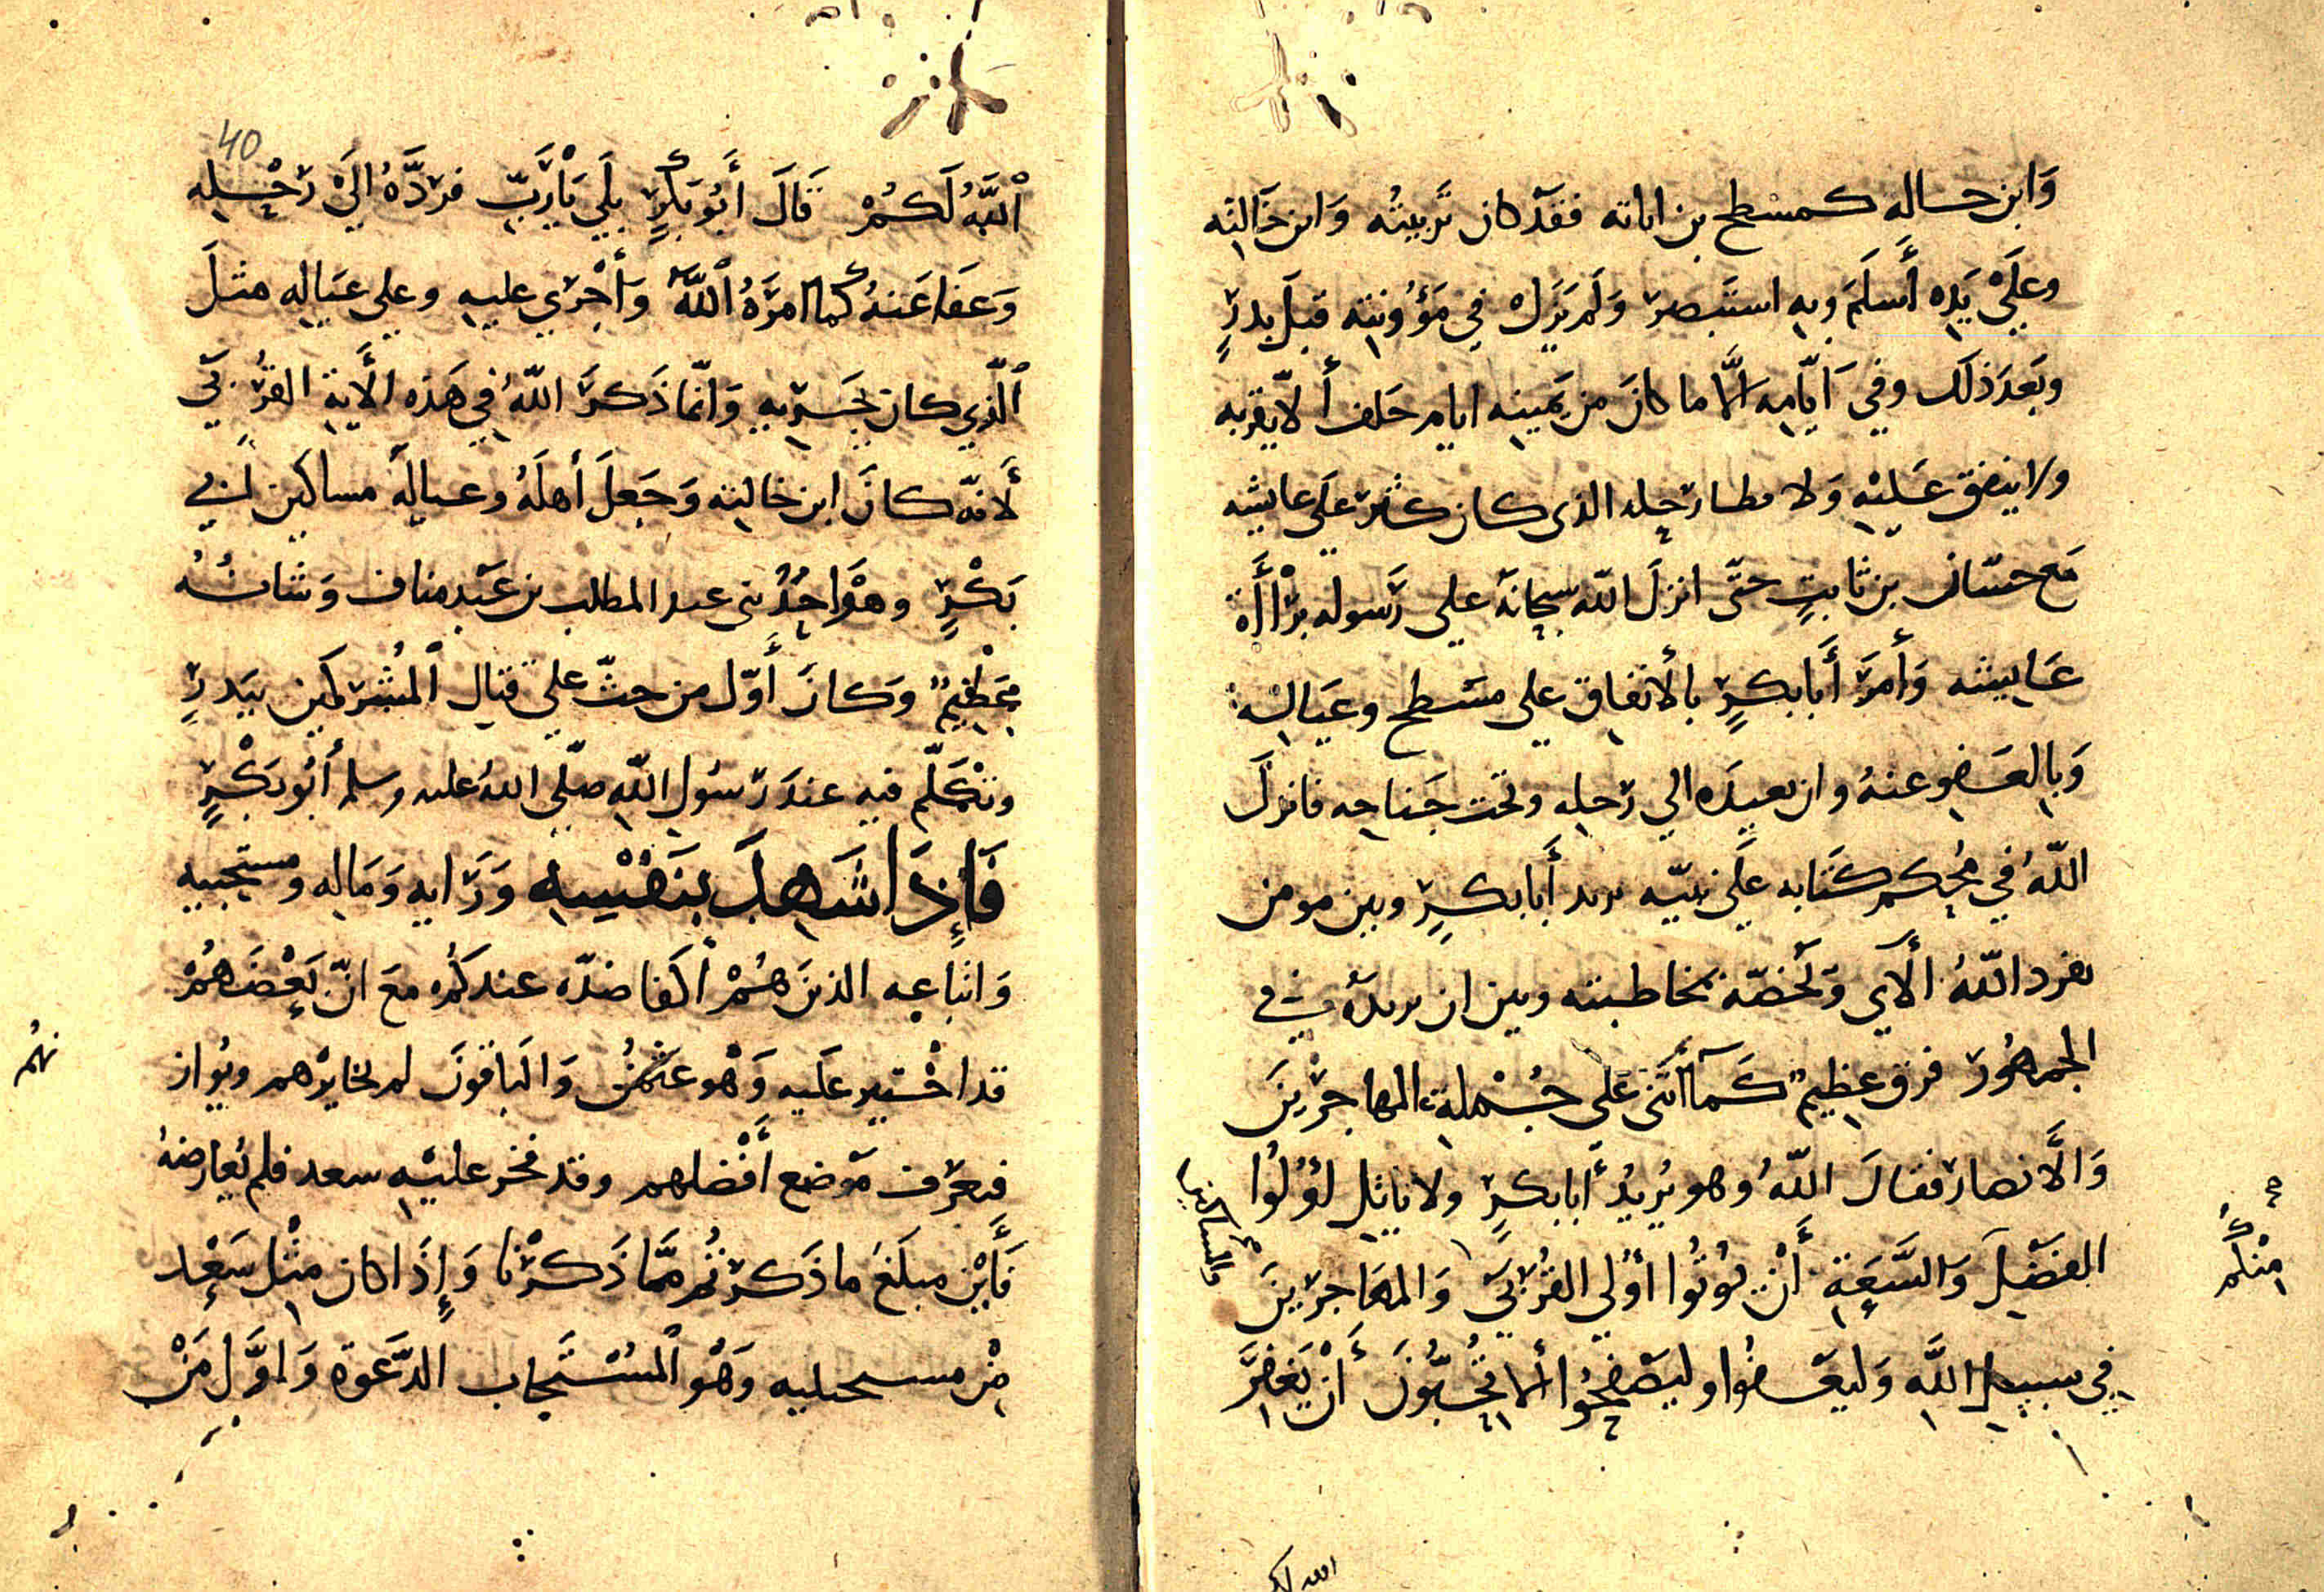 وَابن خاله كمسطح بن اثاثه ففدَ كان تَربيتُه وَابن خَالتِه
وعلَيْ يَدِه أَسلَمَ وبهِ استَبصرَ وَلَم يَزَلْ في مَؤُونتِه قبلَ بدرٍ
وبَعدَ ذلَك وفي اَيّامِه الَّا ما كانَ من يَمينِه ايام حَلف ألّا يقربه
ولا ينفق عَليْهِ وَلا مطا رَحِله الذى كان كثّر عَلَي عايشه
مَع حسّان بن ثابتٍ حتّى انزلَ اللّه سبحانَه علي رَسوله برْاأَة
عَايِشه وَأمرَ أَبَابكرٍ بالأنفاق علي مسَطح وعَيَالِه
وَبالعَفوِ عنهُ وان يعيدَه الي رَحلِه وتحت جَناحِه فانزلَ
اللّهُ في مُحكم كتَابه علَي نبيّه يريد أَبابكرٍ وبين مومن
يفرد اللّهُ الآي وَتَخصّه بمخاطبته وبين ان يريدَه في
الجمهُور فرق عظيم" كَمآ أَثنىَ عَلَى جُمْلة المهاجرْينَ
وَالَّانصار فقالَ اللّهُ وهو يُريدُ أبابكرٍ ولا ياتِل لؤُلُوا
الفضَل وَالسَّعَةِ أَنْ يُوتُوا أُولى القُرْبَي وَالمهَاجرَينَ
في سبيل اللَّهِ وَليعَفوُا وليَصفحُوا ألا تُحبُّونَ أَنْ يَغفرَ
منكم
والمساكين
الله لكم
40
ٱللَّهُ لَكُمْ قَالَ أَبُو بَكْرٍ بلَي يَاْرَبِّ فرَدَّهُ الَيْ رَحْلِه
وَعَفَا عَنهُ كما امرَهُ ٱللَّهُ وَأجْرَي عليه وعلي عيَالِه مثلَ
ٱلّذي كان يُجَرِيهِ وَانّما ذَكرَ اللّهُ في هَذه الأَيةِ القُرْبَي
لَأنّه كانَ ابن خالتِه وَجَعلَ أهلَهُ وعيالِهَ مساكين لأبي
بَكْرٍ وهْوَاحِدُ بني عبد المطلب بن عَبْد مناف وَشانُهُ
عَظيم" وَكانَ أَوّل من حثّ علي قتال ٱلمُشركَين ببَدرٍ
وتَكَلّم فيه عندَ رَسُول اللّهِ صلّي اللهُ عليه وسلم أَبُو بَكْرٍ
فَإِذَا شَهدَ بنَفْسِه وَرَايه وَمَاله ومستجيبيه
وَاتباعِه الذينَ هُمْ أكفا ضدّه عندكُم معَ انّ بَعْضَهُمْ
قد اخْتير عَلَيه وَهْو عثمٰنُ وَالبَاقونَ لم يخايرْهم ويُوازنهُم
فيعرَف مَوضع أَفْضلهم وقد فخر عليْه سعد فلم يُعارضهُ
فَأَيْن مبلَغَ ما ذَكرَتُم ممَّا ذَكرْنا وَإِذَا كان مِثْل سَعْد
مِنْ مستجيبيه وَهْو ٱلمُسْتَجاب الدَّعوة وَاوَّل مَنْ